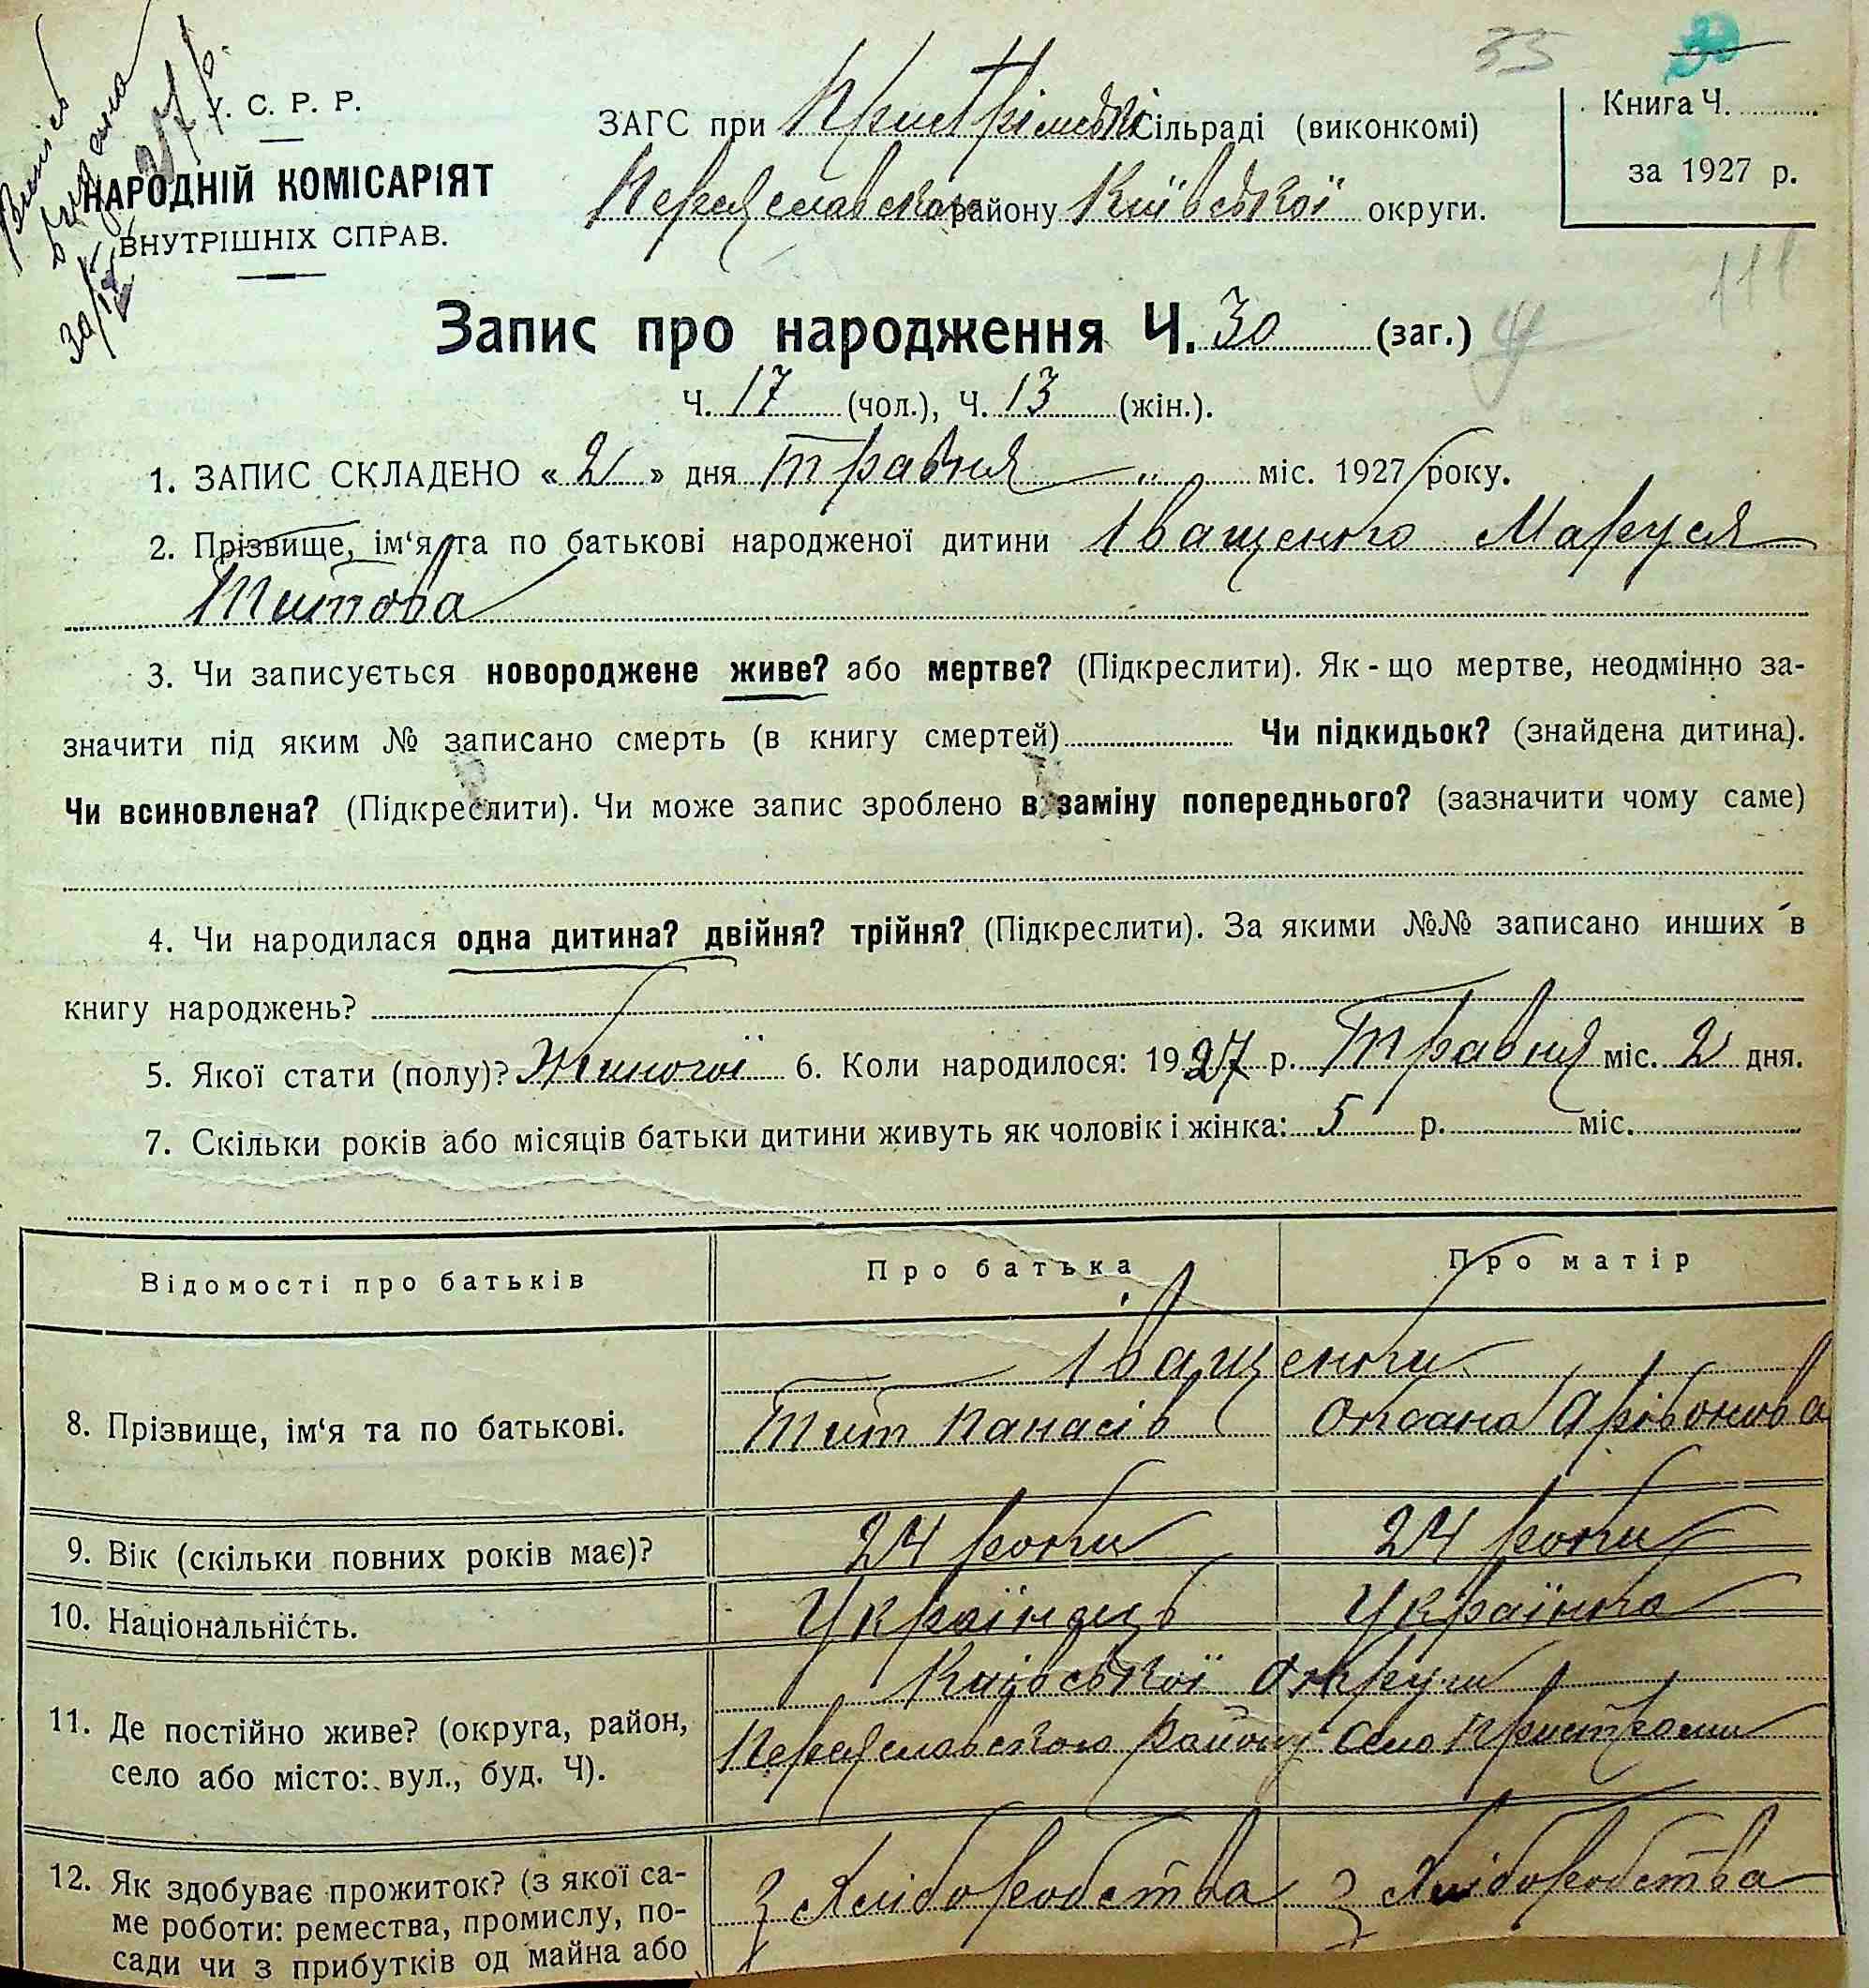 35 30
У. С. Р. Р.
НАРОДНІЙ КОМІСАРІЯТ
ВНУТРІШНІХ СПРАВ.
ЗАГС при Пристрімській Сільраді (виконкомі)
Переяславского району Київської округи.
Книга Ч.
за 1927 р.
111
Запис про народження Ч. 30 (заг.)
Ч. 17 (чол.), Ч. 13 (жін.).
1. ЗАПИС СКЛАДЕНО « 2 » дня Травня „ міс. 1927 року.
2. Прізвище, ім‘я та по батькові народженої дитини Іващенко Маруся
Титова
3. Чи записується новороджене живе? або мертве? (Підкреслити). Як-що мертве, неодмінно за-
значити під яким № записано смерть (в книгу смертей) Чи підкидьок? (знайдена дитина).
Чи всиновлена? (Підкреслити). Чи може запис зроблено в заміну попереднього? (зазначити чому саме)
4. Чи народилася одна дитина? двійня? трійня? (Підкреслити). За якими №№ записано инших в
книгу народжень?
5. Якої стати (полу)? Жиночої 6. Коли народилося: 1927 р. Травня міс. 2 дня.
7. Скільки років або місяців батьки дитини живуть як чоловік і жінка: 5 р. міс.
Відомості про батьків Про батька Про матір
Іващенки
8. Прізвище, ім‘я та по батькові. Тит Панасів Оксана Арівонова
9. Вік (скільки повних років має)? 24 роки 24 роки
10. Національність. Українець Українка
Київської Округи
11. Де постійно живе? (округа, район, Переяславского Району Село Пристроми
село або місто: вул., буд. Ч).
12. Як здобуває прожиток? (з якої са- З Хліборобства З Хліборобства
ме роботи: ремества, промислу, по-
сади чи з прибутків од майна або